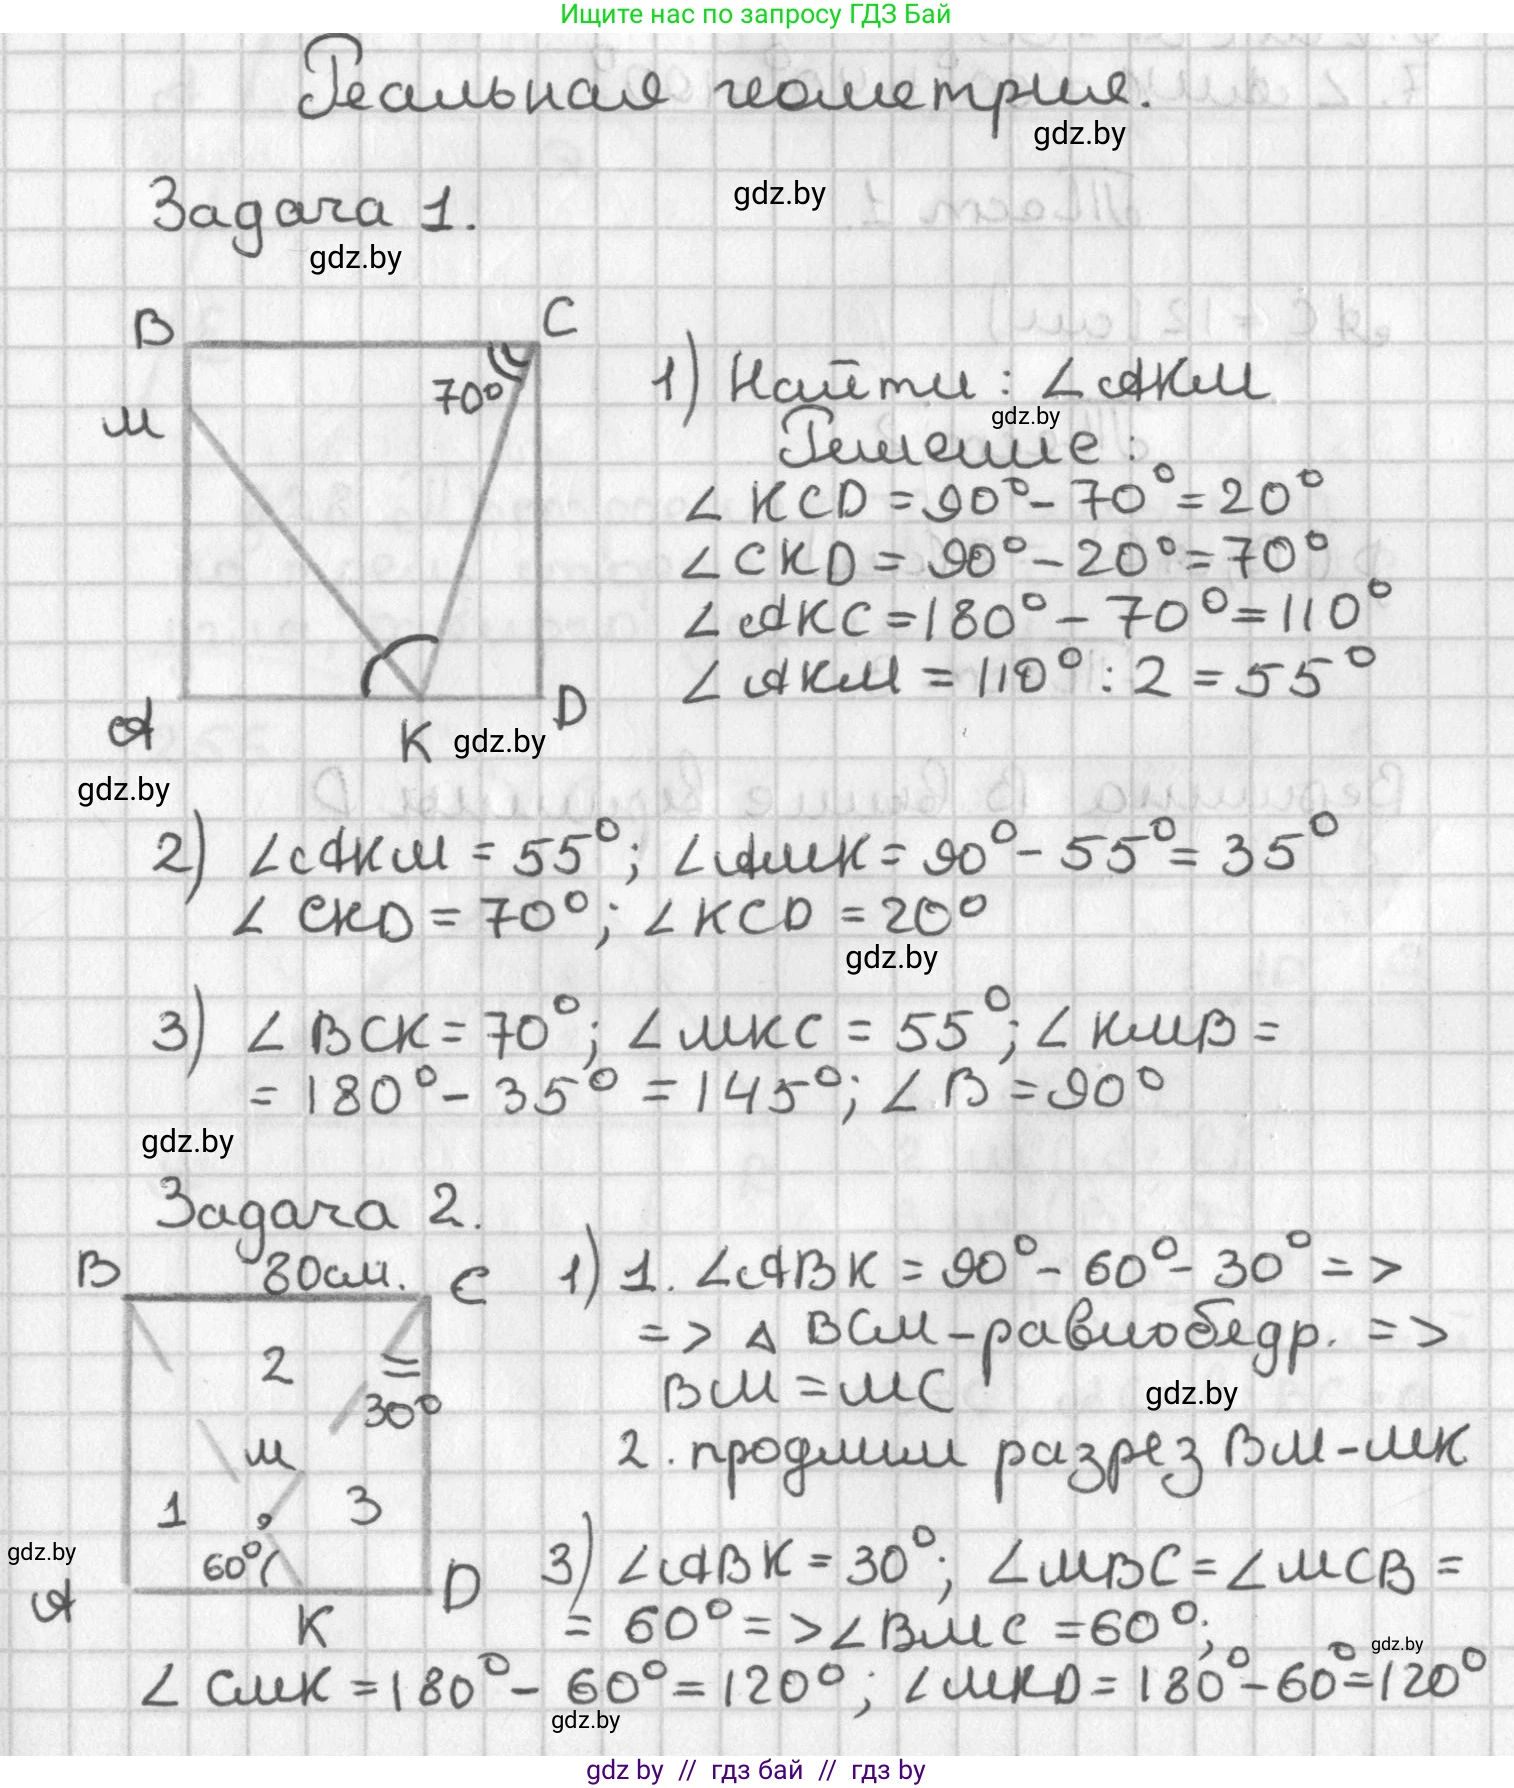 Ищите нас по запросу ГДЗ Бай
Реальная геометрия.
gdz.by
Задача 1.
gdz.by
gdz.by
B
C
M
70°
A
K
D
gdz.by
gdz.by
1) Найти: ∠AKM
gdz.by
Решение:
∠KCD = 90° - 70° = 20°
∠CKD = 90° - 20° = 70°
∠AKC = 180° - 70° = 110°
∠AKM = 110° : 2 = 55°
2) ∠AKM = 55°; ∠AMK = 90° - 55° = 35°
∠CKD = 70°; ∠KCD = 20°
gdz.by
3) ∠BCK = 70°; ∠MKC = 55°; ∠KMB =
= 180° - 35° = 145°; ∠B = 90°
gdz.by
Задача 2.
B
80см.
C
2
30°
M
1
3
60°
gdz.by
A
K
D
1) 1. ∠ABK = 90° - 60° - 30° =>
=> △ BCM - равнобедр. =>
BM = MC
gdz.by
2. продлили разрез BM - MK
3) ∠ABK = 30°; ∠MBC = ∠MCB =
= 60° => ∠BMC = 60°;
gdz.by
∠CMK = 180° - 60° = 120°; ∠MKD = 180° - 60° = 120°
gdz.by
gdz by // гдз бай // гдз by